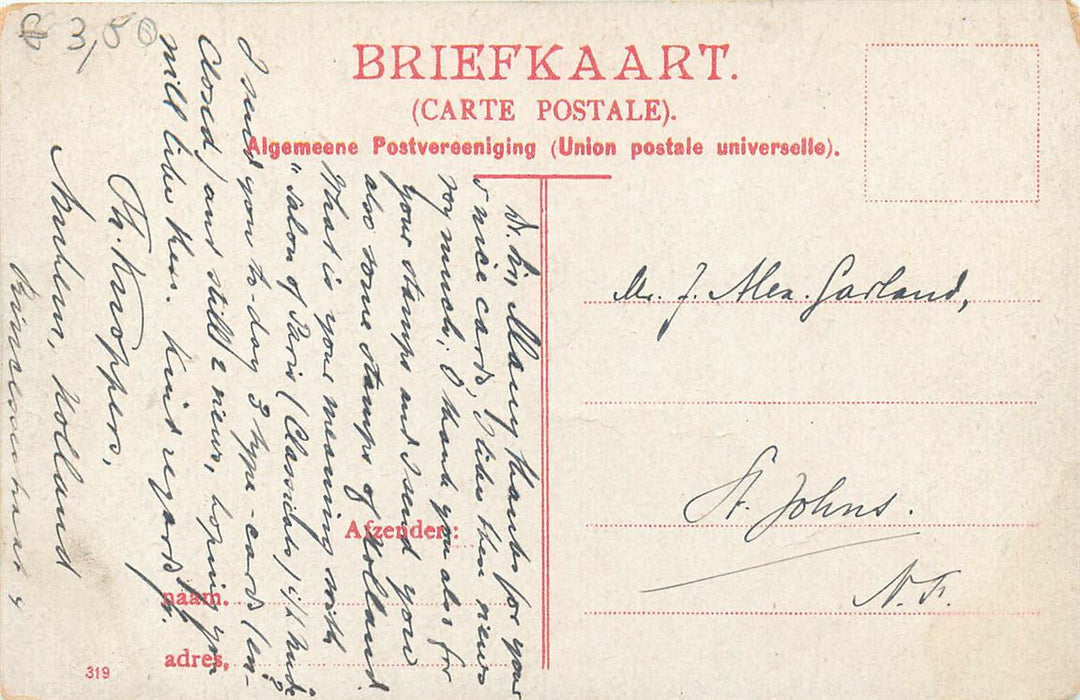 3,50
BRIEFKAART.
(CARTE POSTALE).
Algemeene Postvereeniging (Union postale universelle).
D. Sir, Many thanks for your
nice cards, I like them views
very much; I thank you also for
your stamps and I send you
also some stamps of Holland.
What is your meaning with
"Salon of Paris (Classicals)
I send you to-day 3 type-cards (en-
closed) and still 2 views, hoping you
will like them. Kind regards,
Th. Knoppers,
Arnhem, Holland
4
Mr. J. Alex. Garland,
St. Johns.
N.F.
Afzender:
naam.
adres,
319